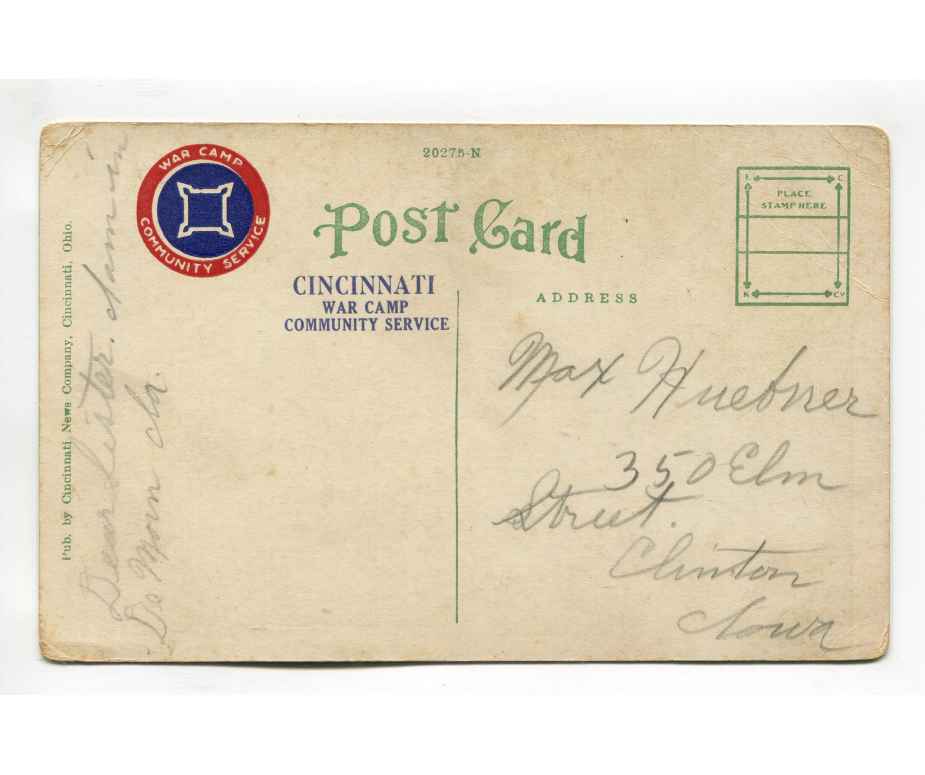 20275-N
WAR CAMP
COMMUNITY SERVICE
POST CARD
I. C.
PLACE
STAMP HERE
N CY
CINCINNATI
WAR CAMP
COMMUNITY SERVICE
ADDRESS
Pub. by Cincinnati News Company, Cincinnati, Ohio.
Dear Sister.
Max Huebner
350 Elm
Street.
Clinton
Iowa